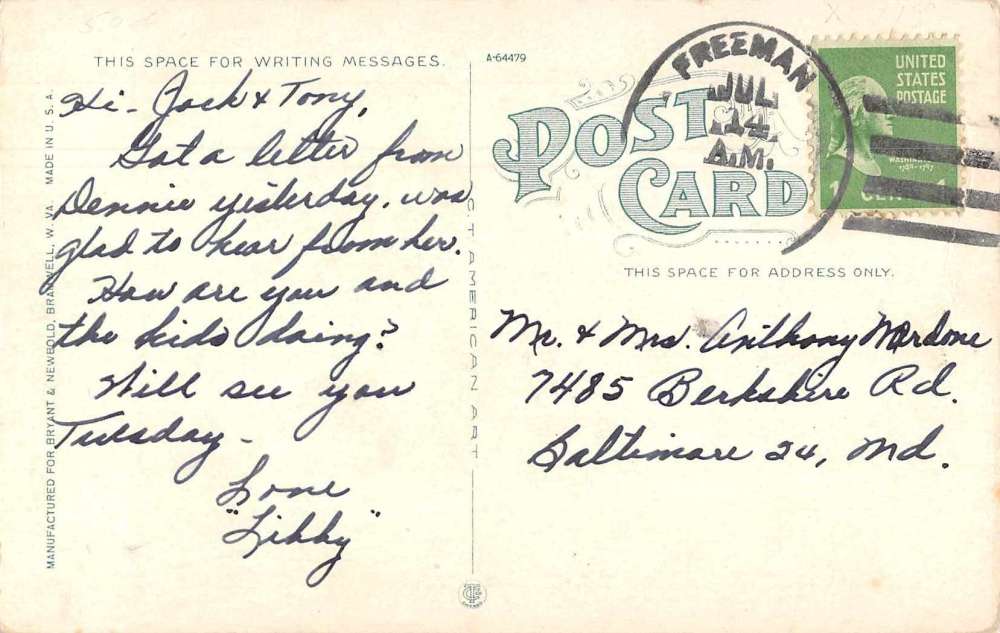 THIS SPACE FOR WRITING MESSAGES.
Hi - Jack & Tony,
Got a letter from
Dennie yesterday. was
glad to hear from her.
How are you and
the kids doing?
Will see you
Tuesday -
Love
"Libby"
MANUFACTURED FOR BRYANT & NEWBOLD, BRAMWELL, W. VA. MADE IN U. S. A.
C. T. AMERICAN ART
A-64479
POST CARD
FREEMAN
JUL
14
A.M.
UNITED
STATES
POSTAGE
WASHINGTON
THIS SPACE FOR ADDRESS ONLY.
Mr. & Mrs. Anthony Mardone
7485 Berkshire Rd.
Baltimore 24, Md.